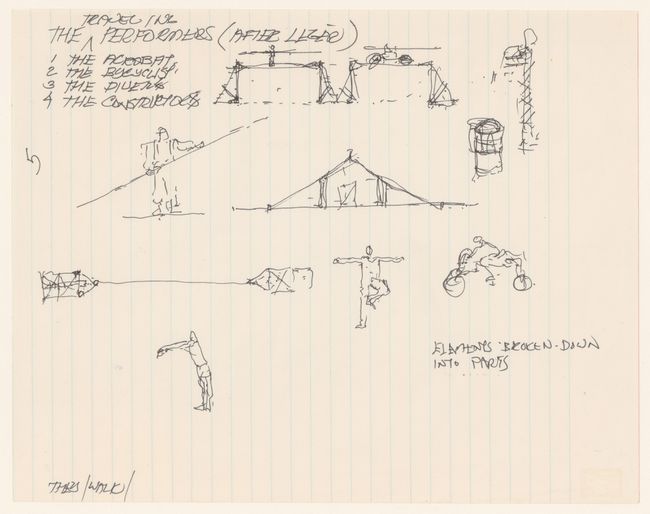 TRAVELING
THE ^ PERFORMERS (AFTER LEGER)
1 THE ACROBAT
2 THE BICYCLIST
3 THE DIVERS
4 THE CONSTRUCTORS
5
ELEMENTS BROKEN DOWN
INTO PARTS
/WALK/